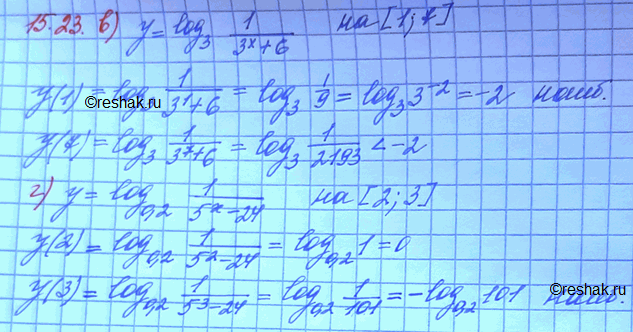 15.23. в) y = log₃ 1/(3ˣ+6) на [1;7]
y(1) = log₃ 1/(3¹+6) = log₃ 1/9 = log₃ 3⁻² = -2 наиб.
©reshak.ru
y(7) = log₃ 1/(3⁷+6) = log₃ 1/2193 < -2
г) y = log₀,₂ 1/(5ˣ-24) на [2;3]
y(2) = log₀,₂ 1/(5²-24) = log₀,₂ 1 = 0
©reshak.ru
y(3) = log₀,₂ 1/(5³-24) = log₀,₂ 1/101 = -log₀,₂ 101 наиб.